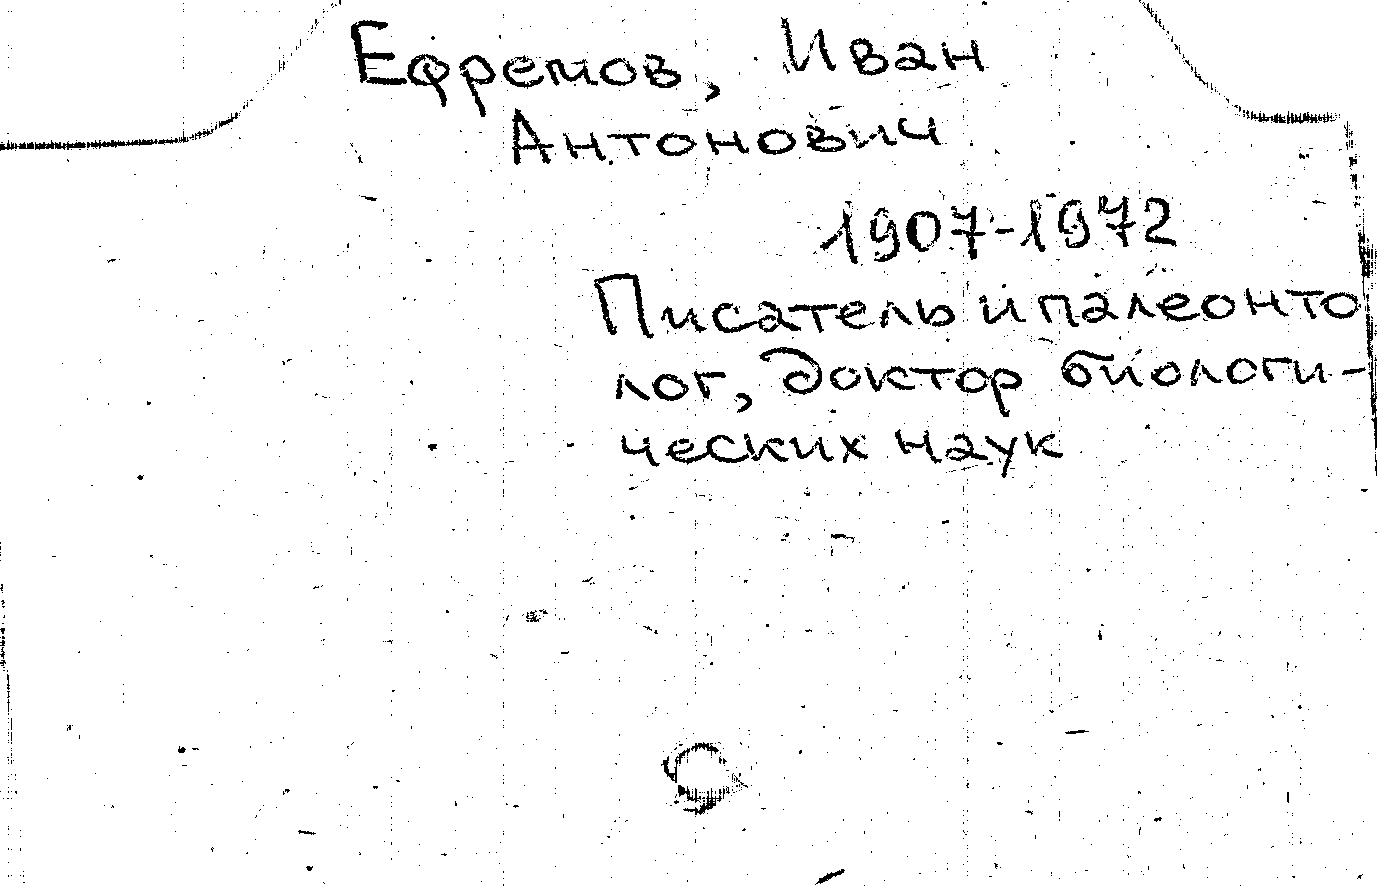 Ефремов, Иван
Антонович
1907-1972
Писатель и палеонто
лог, доктор биологи-
ческих наук